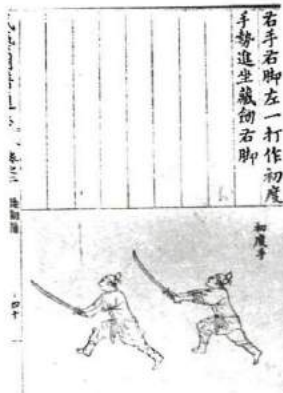 右手右脚左一打作初度
手勢進坐藏劒右脚
初度手
四十